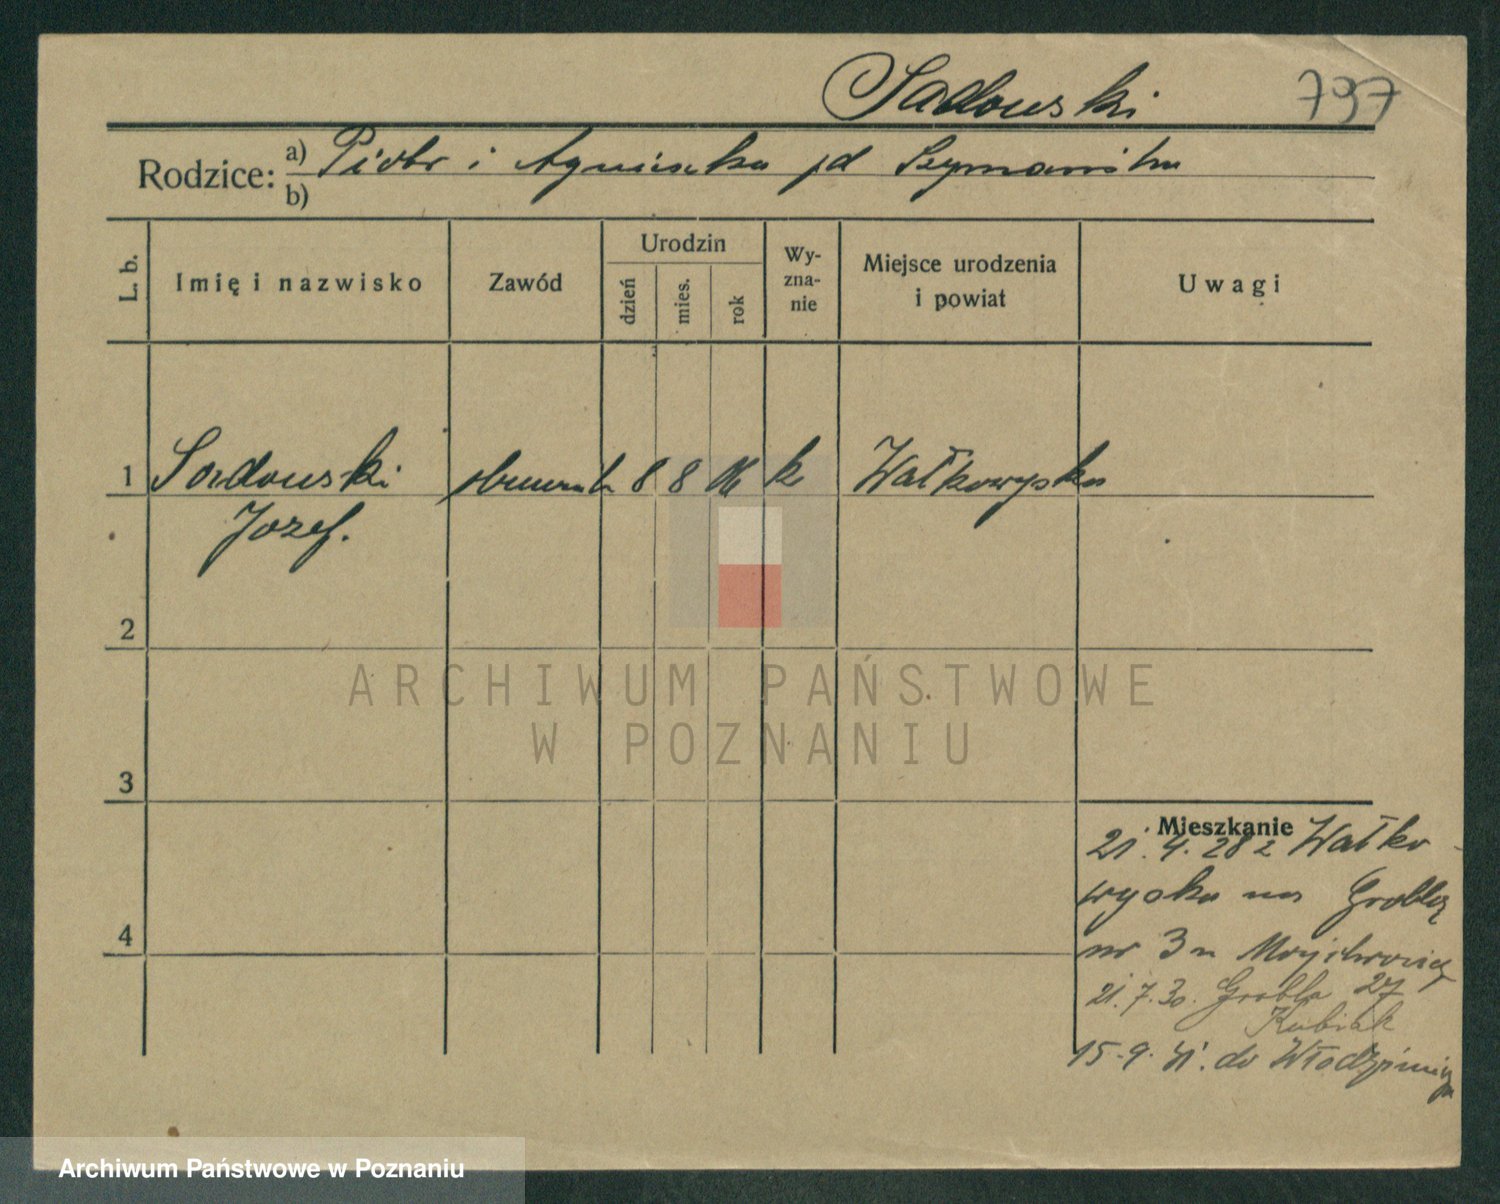 Sadowski 797
Rodzice: a) Piotr i Agnieszka
b)
L. b.
Imię i nazwisko
Zawód
Urodzin
dzień
mies.
rok
Wy-
zna-
nie
Miejsce urodzenia
i powiat
Uwagi
1 Sadowski 8 8 06 k Wałkowyska
Jozef.
2
3
4
Mieszkanie
21. 4. 28 z Wałko-
wyska na Groblą
nr 3 u
21. 7. 30. Grobla 27
Kubiak
15. 9. 31. do
ARCHIWUM PAŃSTWOWE
W POZNANIU
Archiwum Państwowe w Poznaniu